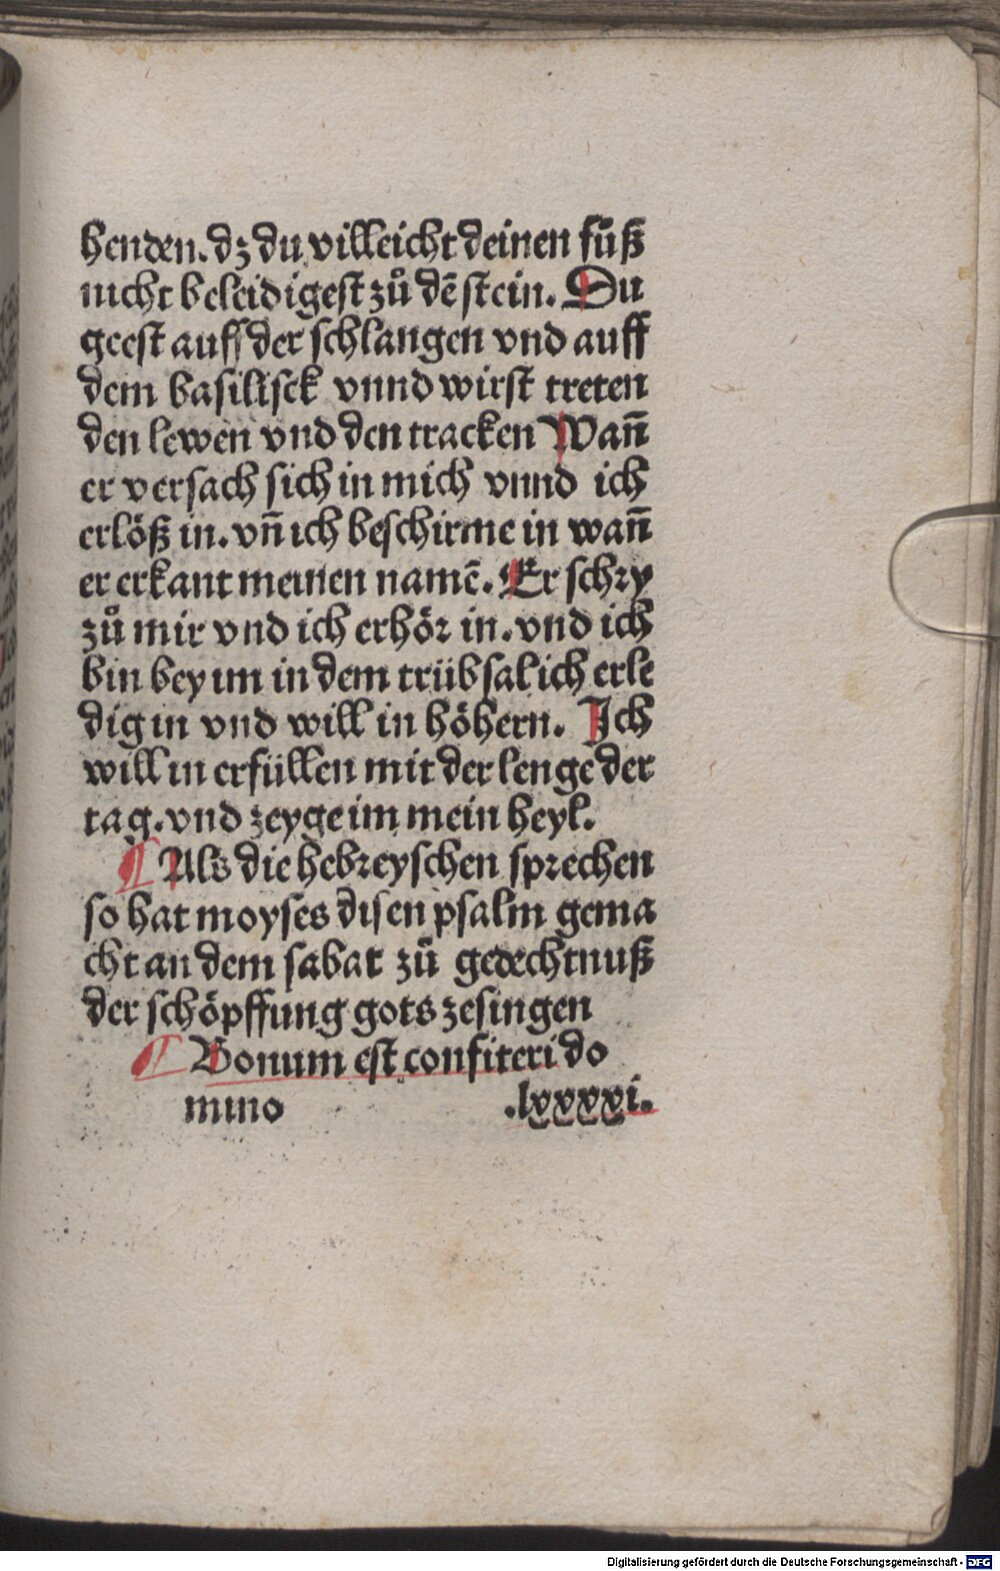 henden. dz du villeicht deinen fůß
nicht beleidigest zů dē stein. Du
geest auff der schlangen vnd auff
dem basilisck vnnd wirst treten
den lewen vnd den tracken Wañ
er versach sich in mich vnnd ich
erlöß in. vñ ich beschirme in wañ
er erkant meinen namē. Er schry
zů mir vnd ich erhör in. vnd ich
bin bey im in dem trübsal ich erle
dig in vnd will in höhern. Ich
will in erfüllen mit der lenge der
tag. vnd zeyge im mein heyl.
¶ Als die hebreyschen sprechen
so hat moyses disen psalm gema
cht an dem sabat zů gedechtnuß
der schöpffung gots zesingen
¶ Bonum est confiteri do
mino .lxxxxi.
Digitalisierung gefördert durch die Deutsche Forschungsgemeinschaft - DFG